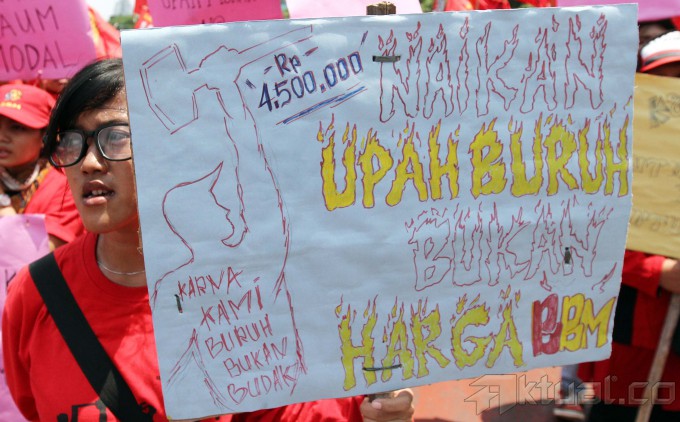 AUM
MODAL
Rp
4.500.000
NAIKAN
UPAH BURUH
BUKAN
HARGA BBM
KARNA
KAMI
BURUH
BUKAN
BUDAK
aktual.co